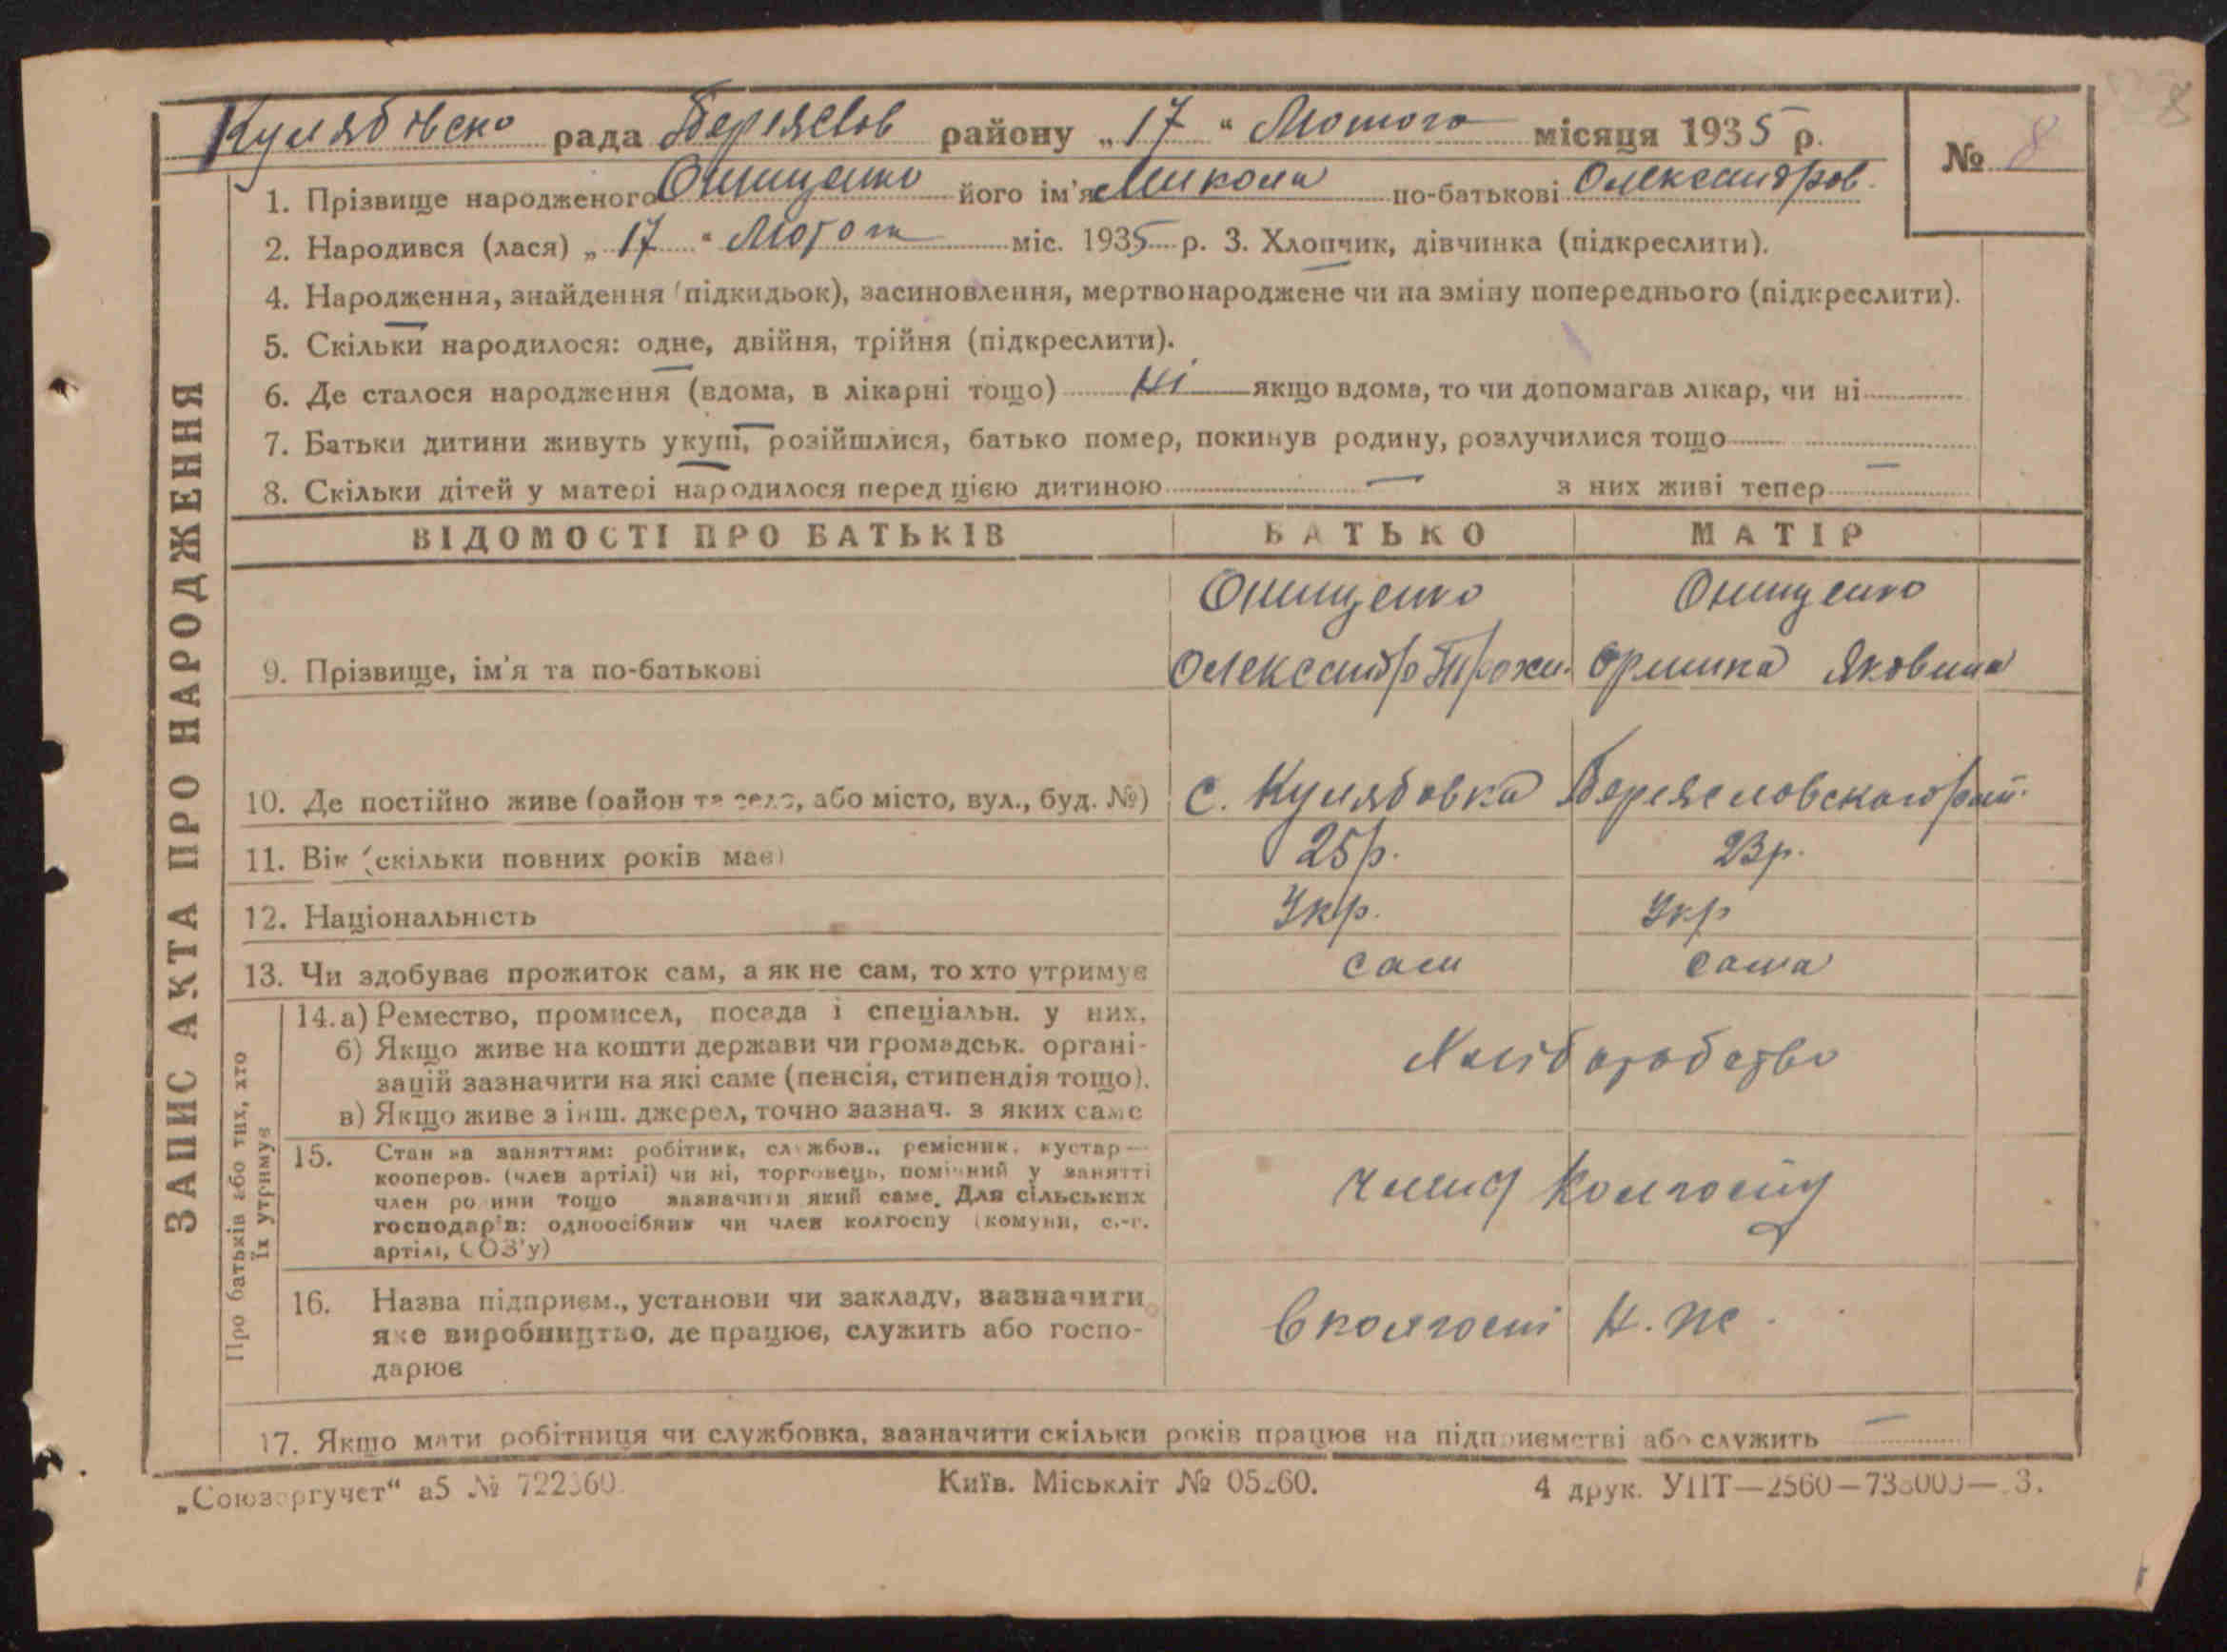 Кулябовско рада Переяслов району „17“ Лютого місяця 1935 р.
№ 8
8
1. Прізвище народженого Онищенко його ім'я Микола по-батькові Олександров.
2. Народився (лася) „17“ Лютого міс. 1935 р. 3. Хлопчик, дівчинка (підкреслити).
4. Народження, знайдення (підкидьок), засиновлення, мертвонароджене чи на зміну попереднього (підкреслити).
5. Скільки народилося: одне, двійня, трійня (підкреслити).
6. Де сталося народження (вдома, в лікарні тощо) Ні якщо вдома, то чи допомагав лікар, чи ні
7. Батьки дитини живуть укупі, розійшлися, батько помер, покинув родину, розлучилися тощо
8. Скільки дітей у матері народилося перед цією дитиною — з них живі тепер —
ВІДОМОСТІ ПРО БАТЬКІВ БАТЬКО МАТІР
Онищенко Онищенко
9. Прізвище, ім'я та по-батькові Олександр Оришка Яковина
10. Де постійно живе (район та село, або місто, вул., буд. №) с. Кулябовка Переясловского рай.
11. Вік (скільки повних років має) 25 р. 23 р.
12. Національність Укр. Укр
13. Чи здобуває прожиток сам, а як не сам, то хто утримує сам сама
14. а) Ремество, промисел, посада і спеціальн. у них.
б) Якщо живе на кошти держави чи громадськ. органі-
зацій зазначити на які саме (пенсія, стипендія тощо).
в) Якщо живе з інш. джерел, точно зазнач. з яких саме
Хліборобство
15. Стан за заняттям: робітник, службов., ремісник, кустар—
кооперов. (член артілі) чи ні, торговець, помічний у занятті
член родини тощо зазначити який саме. Для сільських
господарів: одноосібник чи член колгоспу (комуни, с.-г.
артілі, СОЗ'у)
члени Колгоспу
16. Назва підприєм., установи чи закладу, зазначити
яке виробництво, де працює, служить або госпо-
дарює
В колгоспі Н. Ж.
17. Якщо мати робітниця чи службовка, зазначити скільки років працює на підприємстві або служить —
ЗАПИС АКТА ПРО НАРОДЖЕННЯ
Про батьків або тих, хто
їх утримує
„Союзоргучет“ а5 № 722360.
Київ. Міськліт № 05260.
4 друк. УПТ—2560—